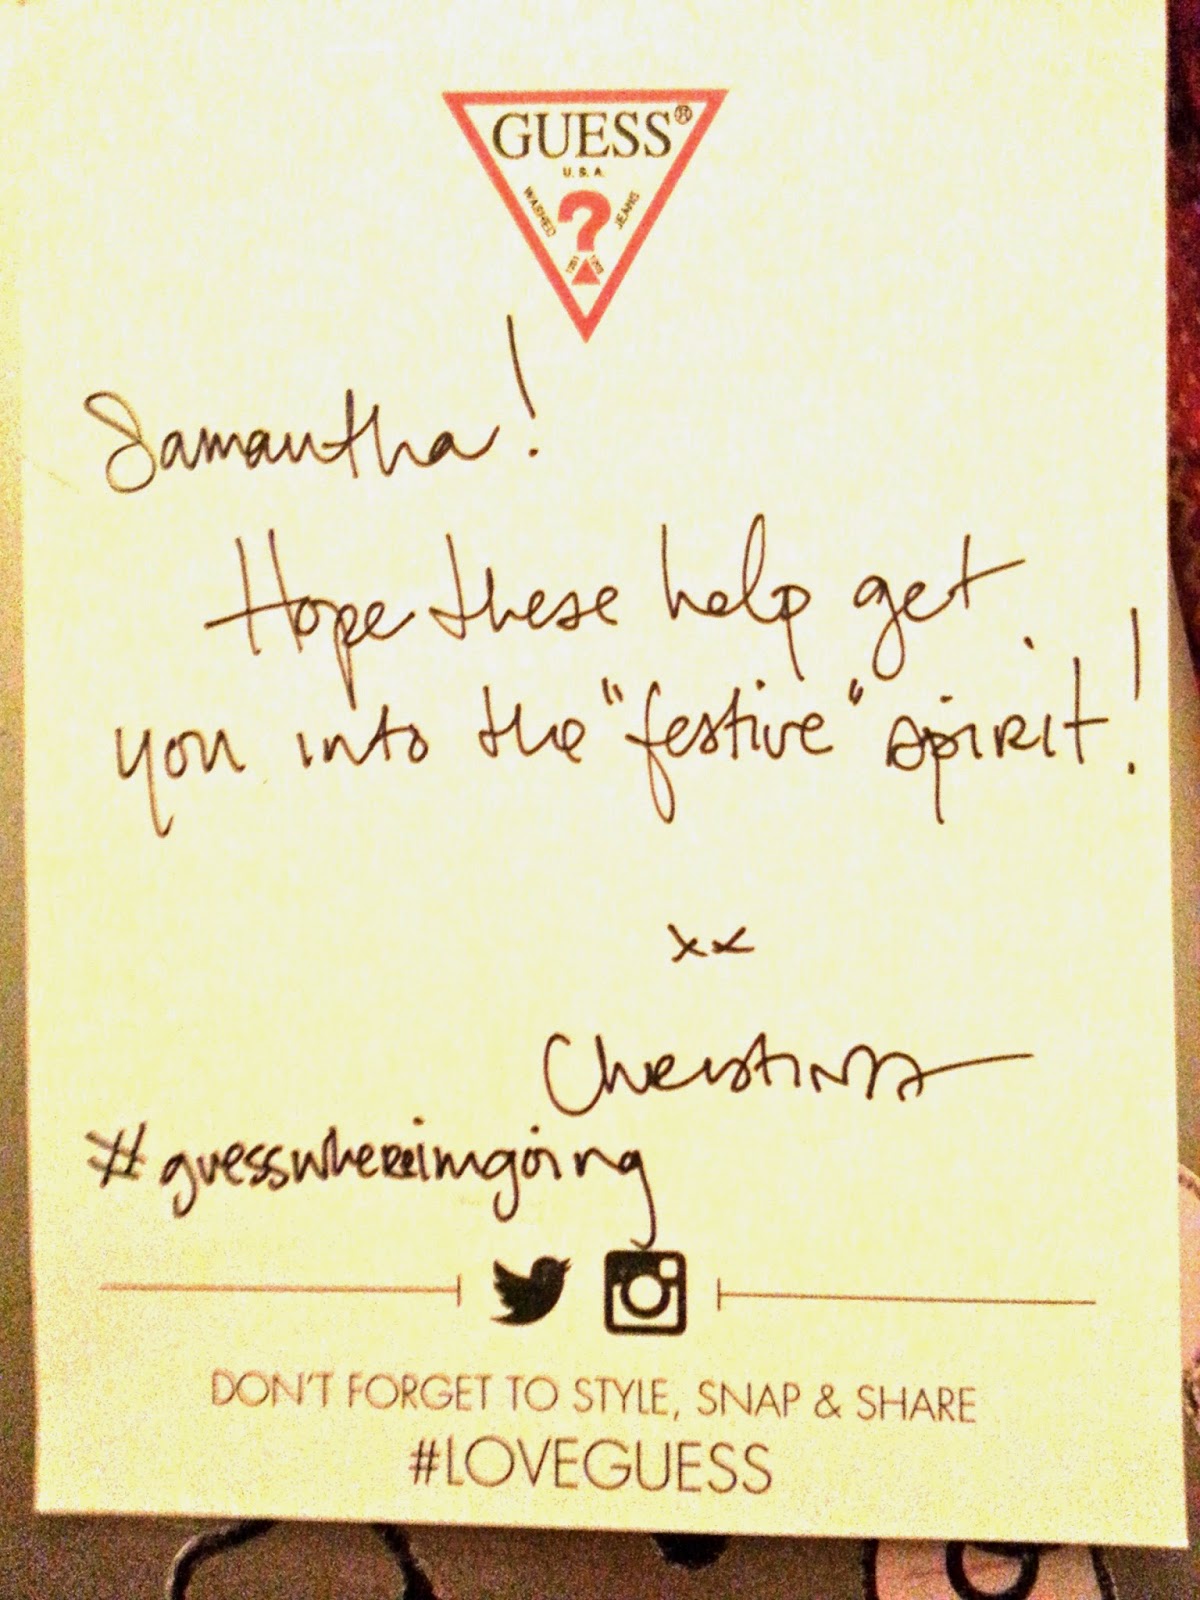 GUESS®
U.S.A.
WASHED ? JEANS
Samantha!
Hope these help get
you into the "festive" spirit!
xx
Christina
#guesswhereimgoing
DON'T FORGET TO STYLE, SNAP & SHARE
#LOVEGUESS